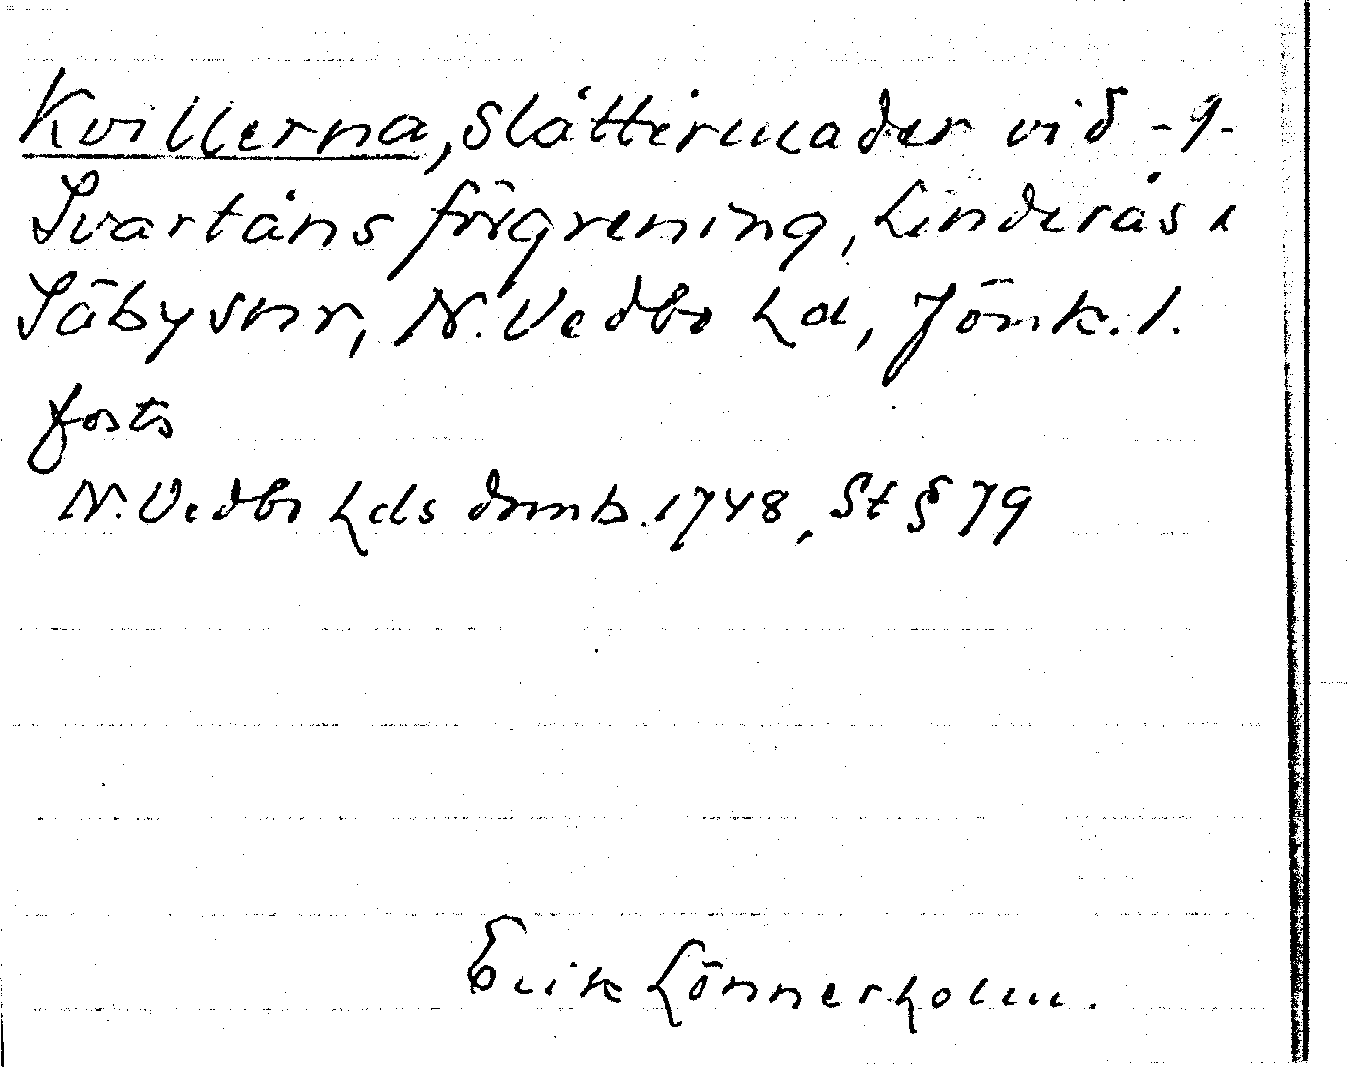 Kvillerna, slåttermader vid -9-
Svartåns förgrening, Linderås i
Säby snr, N. Vedbo hd, Jönk. l.
forts
N. Vedbo hds domb. 1748, St § 79
Erik Lönnerholm.